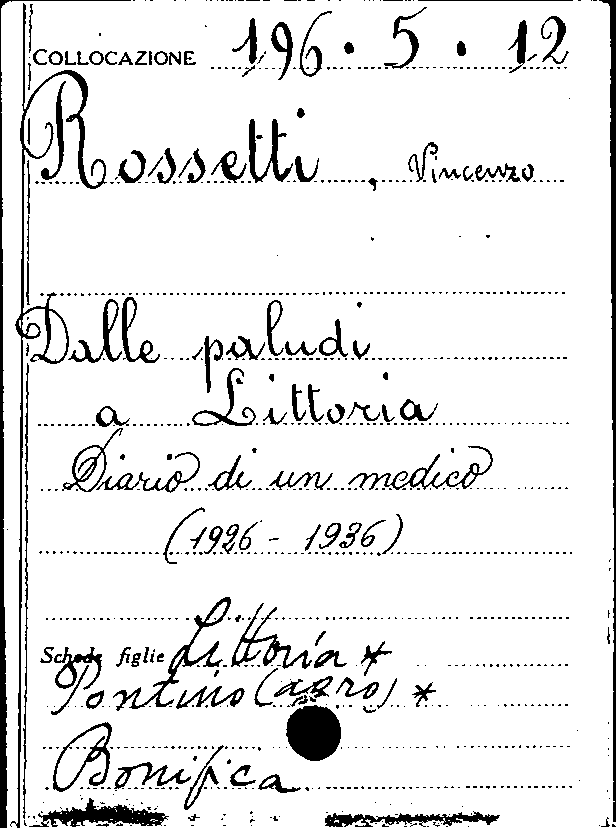 COLLOCAZIONE 196 . 5 . 12
Rossetti , Vincenzo
Dalle paludi
a Littoria
Diario di un medico
(1926 - 1936)
Schede figlie Littoria *
Pontino (agro) *
Bonifica